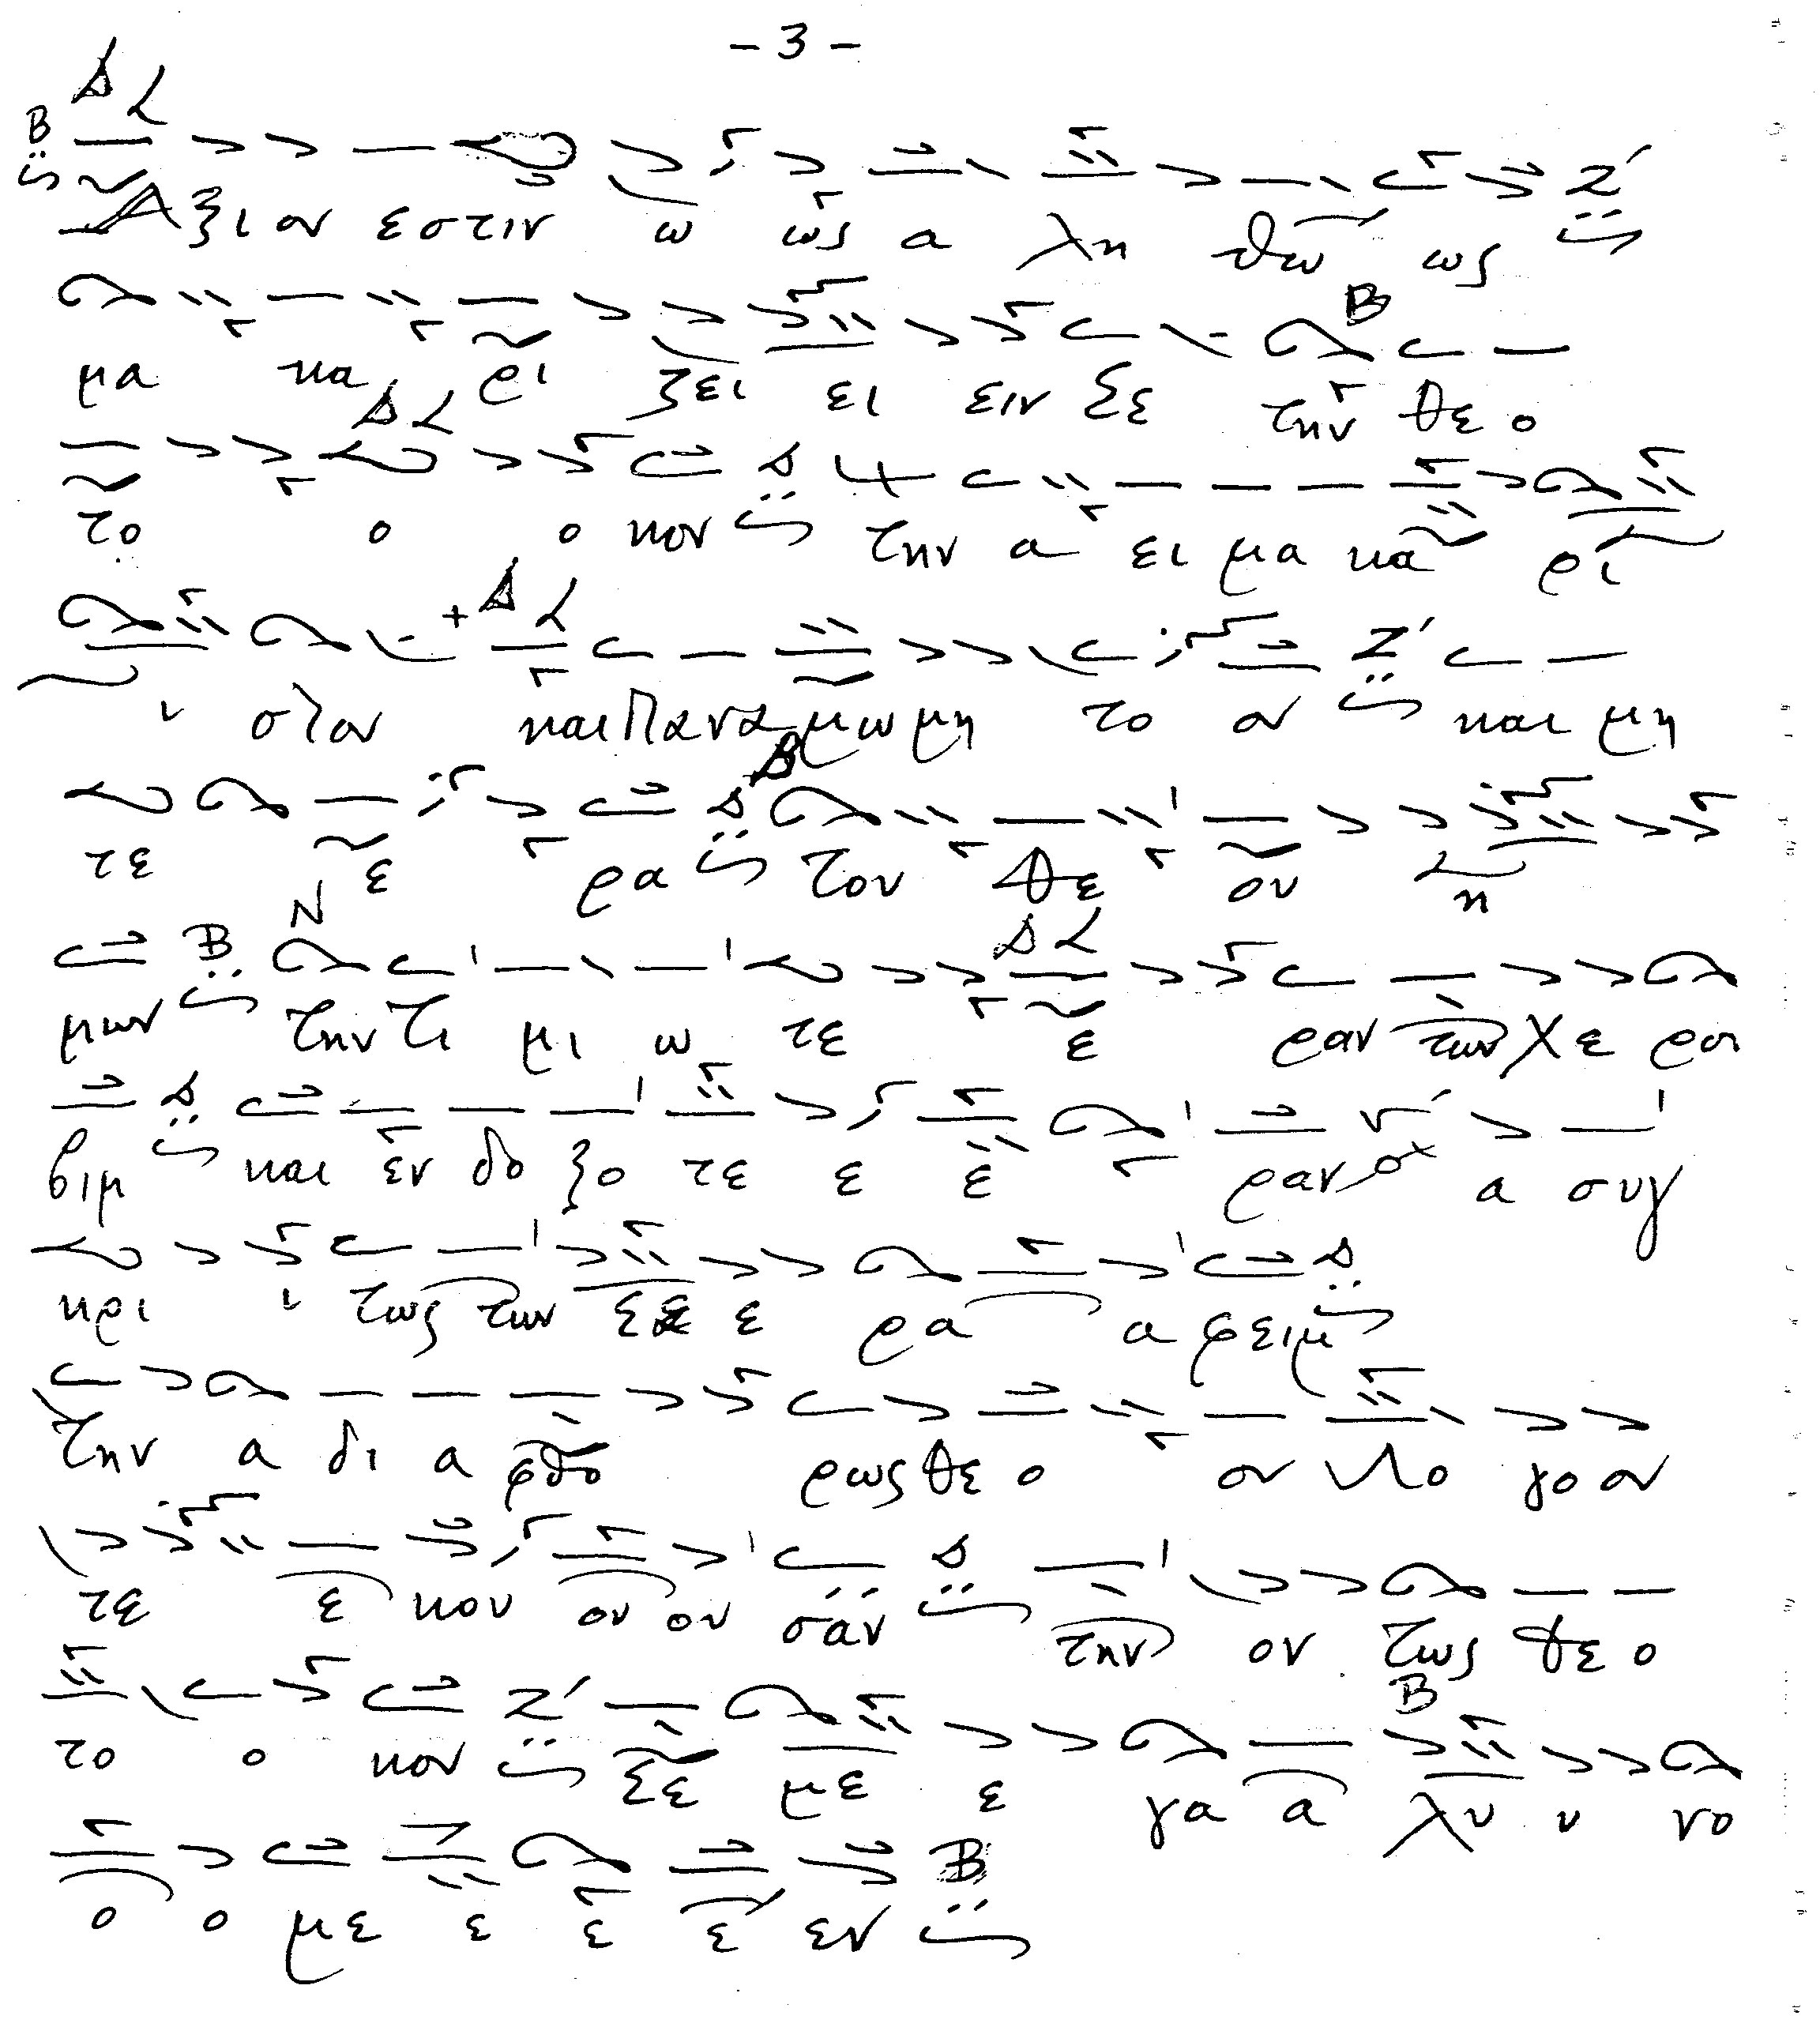 - 3 -
Αξι ον εστιν ω ως α λη θω ως
μα κα ρι ζει ει ειν σε την θε ο
το ο ο κον την α ει μα κα ρι
ι στον και Πανα μω μη το ον και μη
τε ε ρα τον θε ον η
μων την τι μι ω τε ε ραν των χε ρου
βιμ και εν δο ξο τε ε ε ραν α συγ
κρι ι τως των σε ε ρα α φειμ
την α δι α φθο ρως θε ο ον λο γο ον
τε ε κου ου ου σαν την ον τως θε ο
το ο κον σε με ε γα α λυ υ νο
ο ο με ε ε ε εν